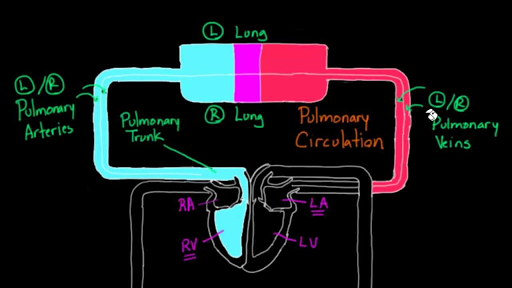 L Lung
L/R
Pulmonary
Arteries
Pulmonary
Trunk
R Lung
Pulmonary
Circulation
L/R
Pulmonary
Veins
RA
LA
RV
LV